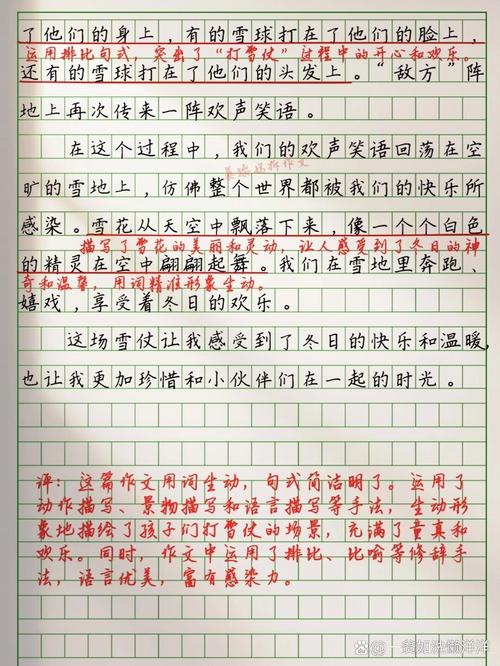 了他们的身上，有的雪球打在了他们的脸上，
运用排比句式，突出了“打雪仗”过程中的开心和欢乐。
还有的雪球打在了他们的头发上。“敌方”阵
地上再次传来一阵欢声笑语。
在这个过程中，我们的欢声笑语回荡在空
旷的雪地上，仿佛整个世界都被我们的快乐所
感染。雪花从天空中飘落下来，像一个个白色
描写了雪花的美丽和灵动，让人感受到了冬日的神
的精灵在空中翩翩起舞。我们在雪地里奔跑、
奇和温馨，用词精准形象生动。
嬉戏，享受着冬日的欢乐。
这场雪仗让我感受到了冬日的快乐和温暖，
也让我更加珍惜和小伙伴们在一起的时光。
评：这篇作文用词生动，句式简洁明了。运用了
动作描写、景物描写和语言描写等手法，生动形
象地描绘了孩子们打雪仗的场景，充满了童真和
欢乐。同时，作文中运用了排比、比喻等修辞手
法，语言优美，富有感染力。